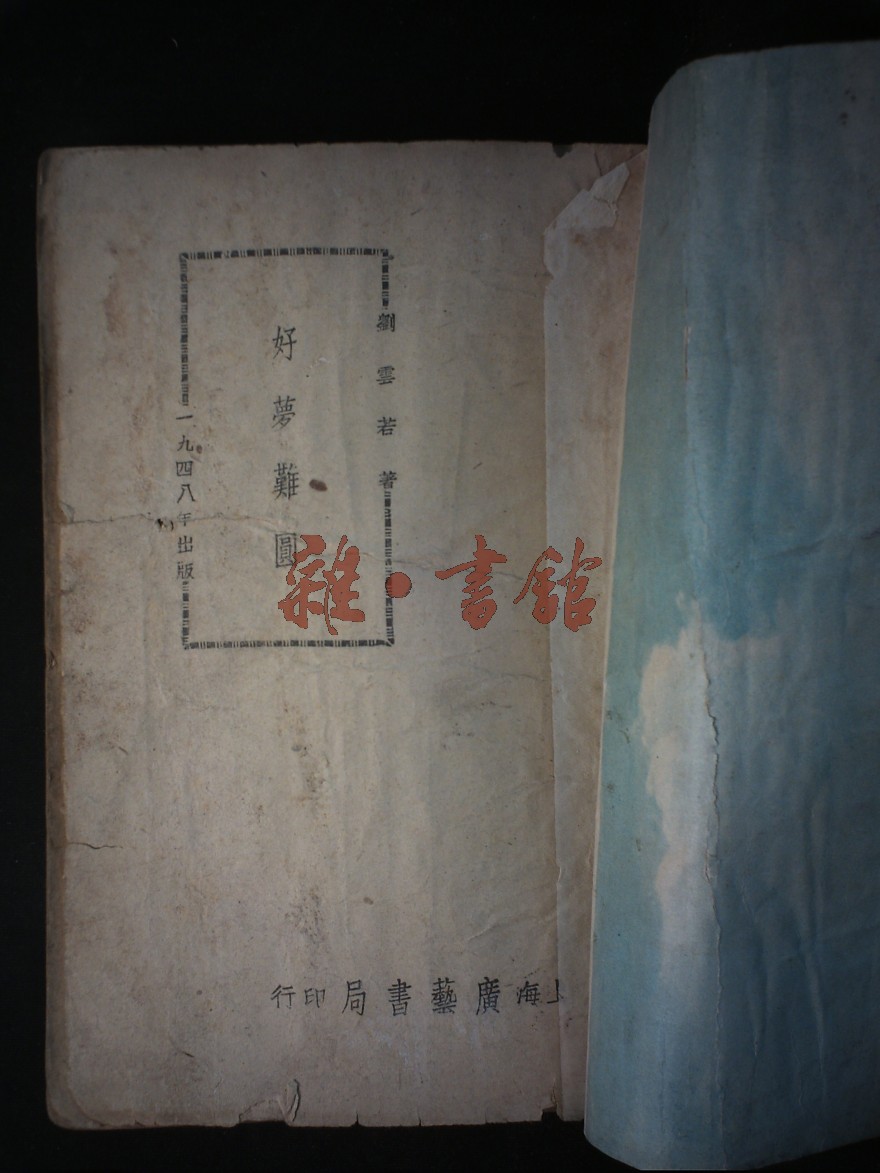 劉雲若著
好夢難圓
一九四八年出版
上海廣藝書局印行
雜·書館